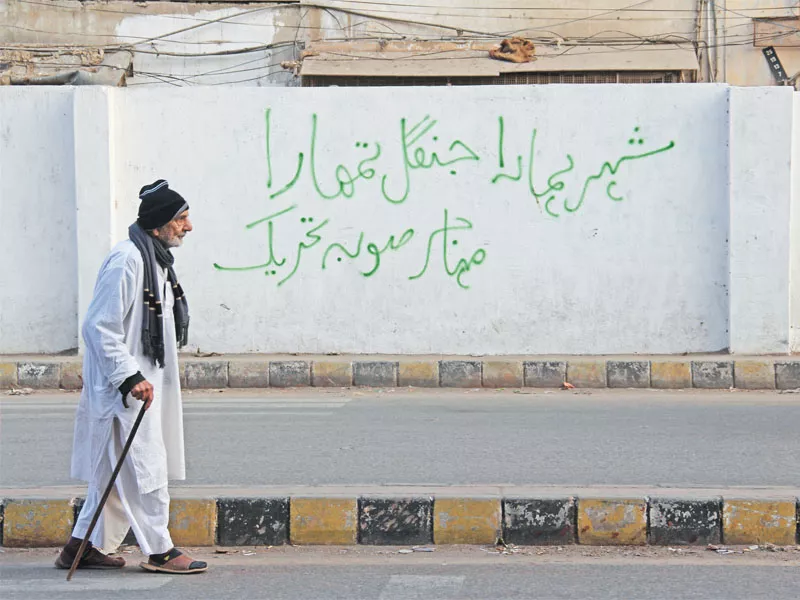 شہر ہمارا جنگل تمہارا
مہاجر صوبہ تحریک